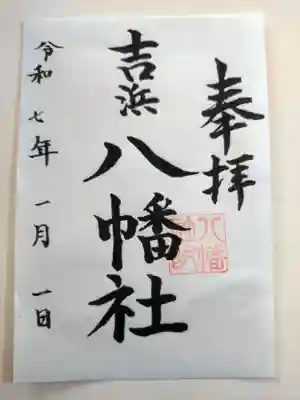 奉拝
吉浜
八幡社
令和七年一月一日